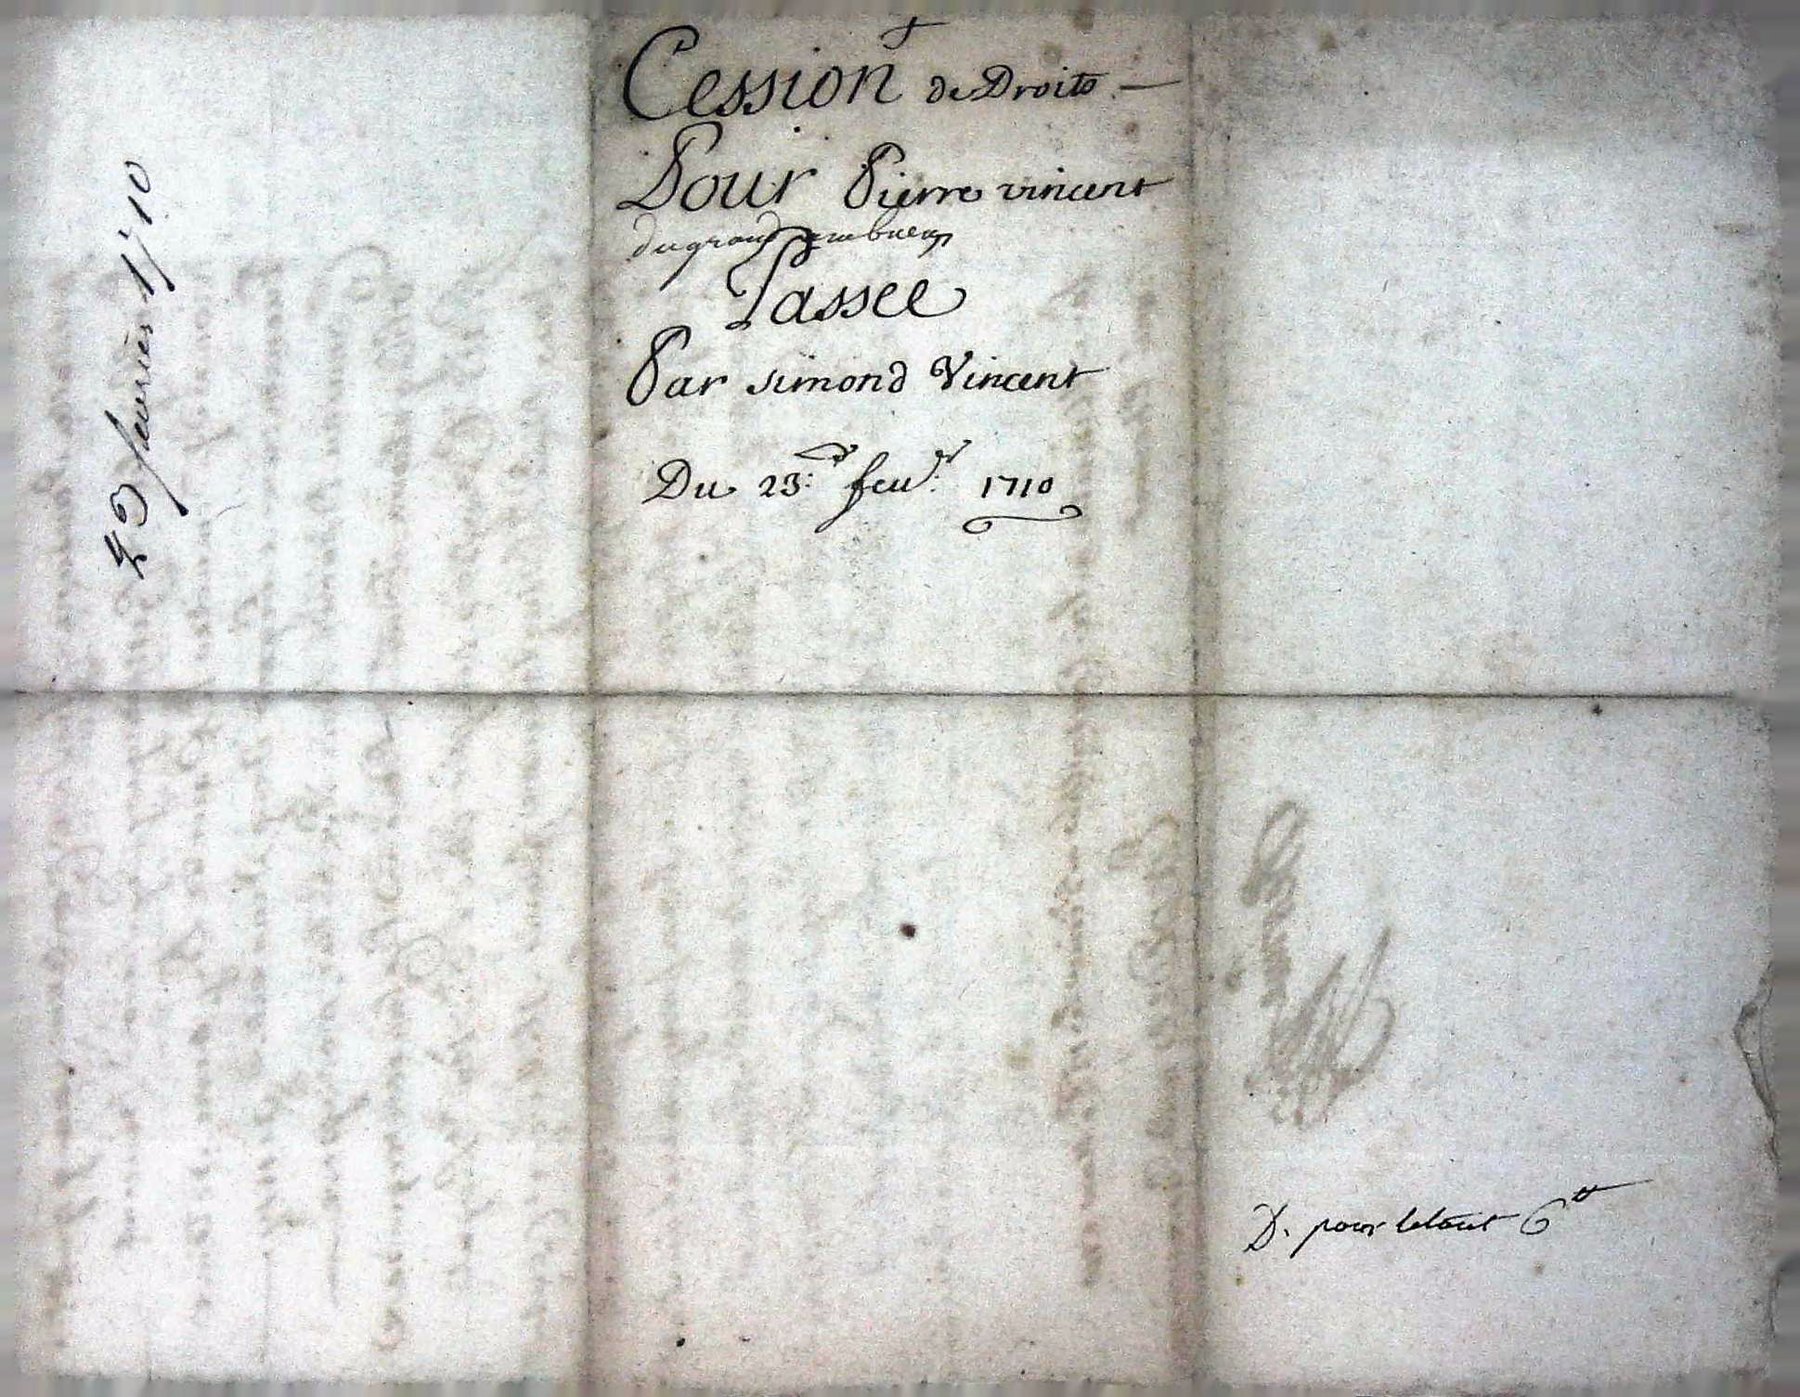 23 feurier 1710
Cession de Droits
Pour Pierre vincent
du grand
Passee
Par simond Vincent
Du 23.e feu.r 1710
D. pour letout 6tt